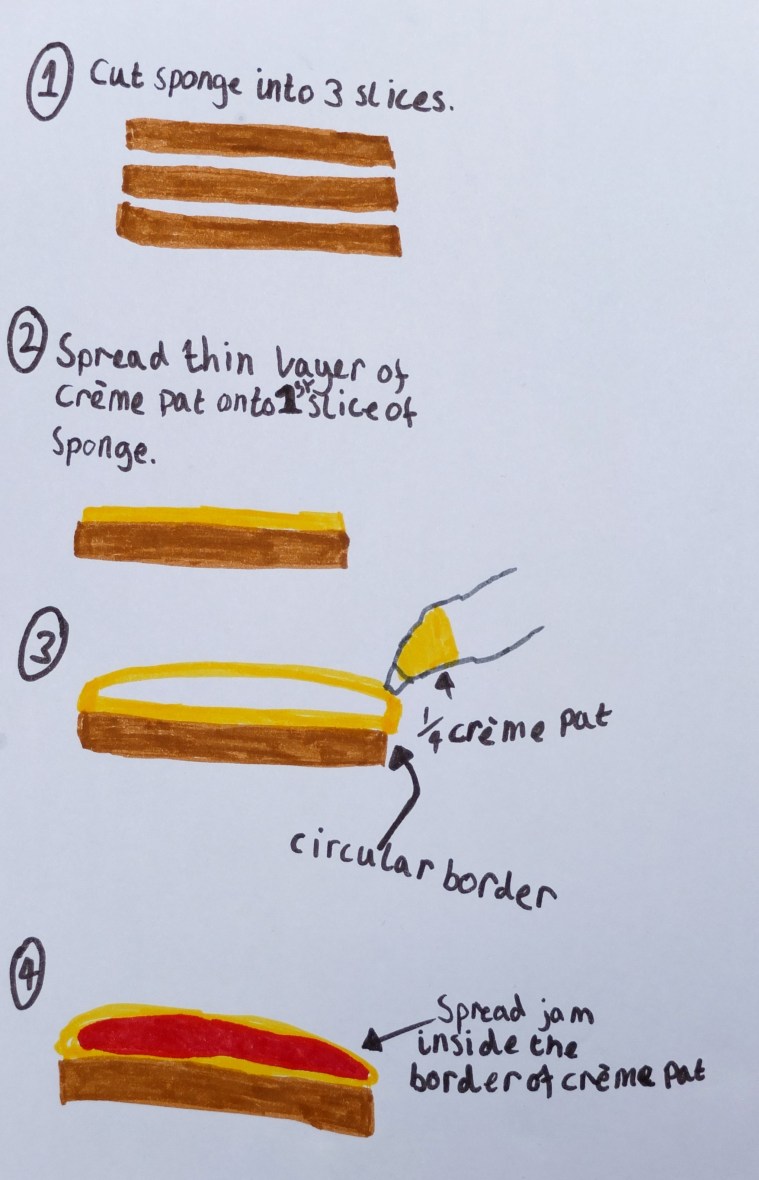 1 Cut sponge into 3 slices.
2 Spread thin layer of
crème pat onto 1st slice of
sponge.
3
1/4 crème pat
circular border
4
Spread jam
inside the
border of crème pat